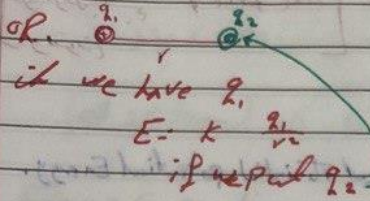 OR. q₁ q₂
r
if we have q₁
E = K q₁/r²
if we put q₂